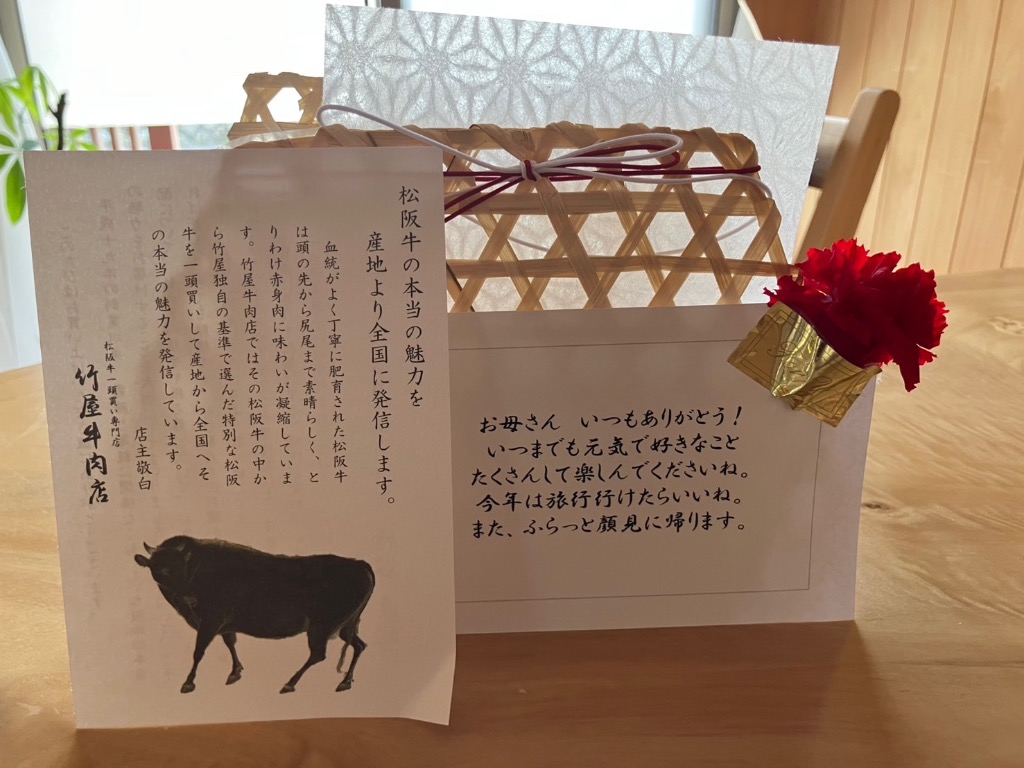 松阪牛の本当の魅力を
産地より全国に発信します。
血統がよく丁寧に肥育された松阪牛
は頭の先から尻尾まで素晴らしく、と
りわけ赤身肉に味わいが凝縮していま
す。竹屋牛肉店ではその松阪牛の中か
ら竹屋独自の基準で選んだ特別な松阪
牛を一頭買いして産地から全国へそ
の本当の魅力を発信しています。
店主敬白
松阪牛一頭買い専門店
竹屋牛肉店
お母さん　いつもありがとう！
いつまでも元気で好きなこと
たくさんして楽しんでくださいね。
今年は旅行行けたらいいね。
また、ふらっと顔見に帰ります。